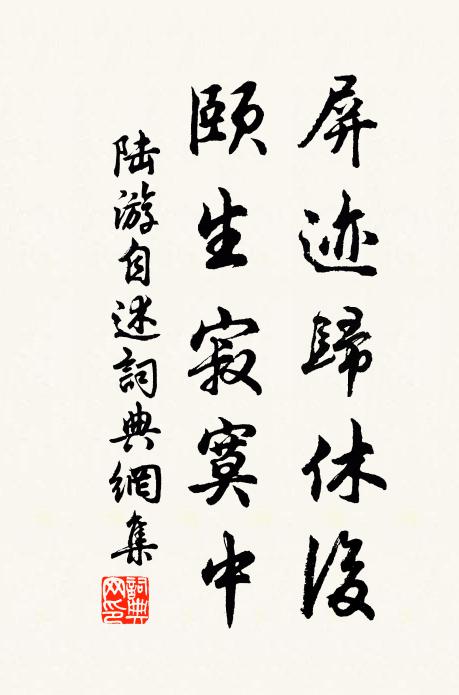 屏迹歸休後
頤生寂寞中
陸游自述詞典網集
詞典网印